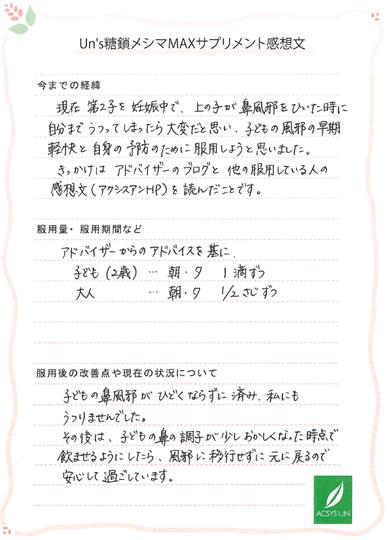 Un's糖鎖メシマMAXサプリメント感想文
今までの経緯
現在 第2子を妊娠中で、上の子が鼻風邪をひいた時に
自分までうつってしまったら大変だと思い、子どもの風邪の早期
軽快と自身の予防のために服用しようと思いました。
きっかけはアドバイザーのブログと他の服用している人の
感想文(アクシスアンHP)を読んだことです。
服用量・服用期間など
アドバイザーからのアドバイスを基に、
子ども(2歳) … 朝・夕 1滴ずつ
大人 … 朝・夕 1/2さじずつ
服用後の改善点や現在の状況について
子どもの鼻風邪がひどくならずに済み、私にも
うつりませんでした。
その後は、子どもの鼻の調子が少しおかしくなった時点で
飲ませるようにしたら、風邪に移行せずに元に戻るので
安心して過ごしています。
ACSYS UN